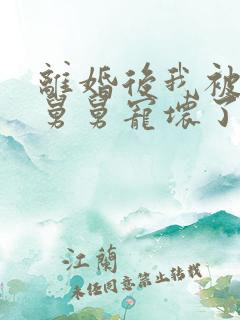 離婚後我被
舅舅寵壞了
江蘭
未經同意禁止轉載